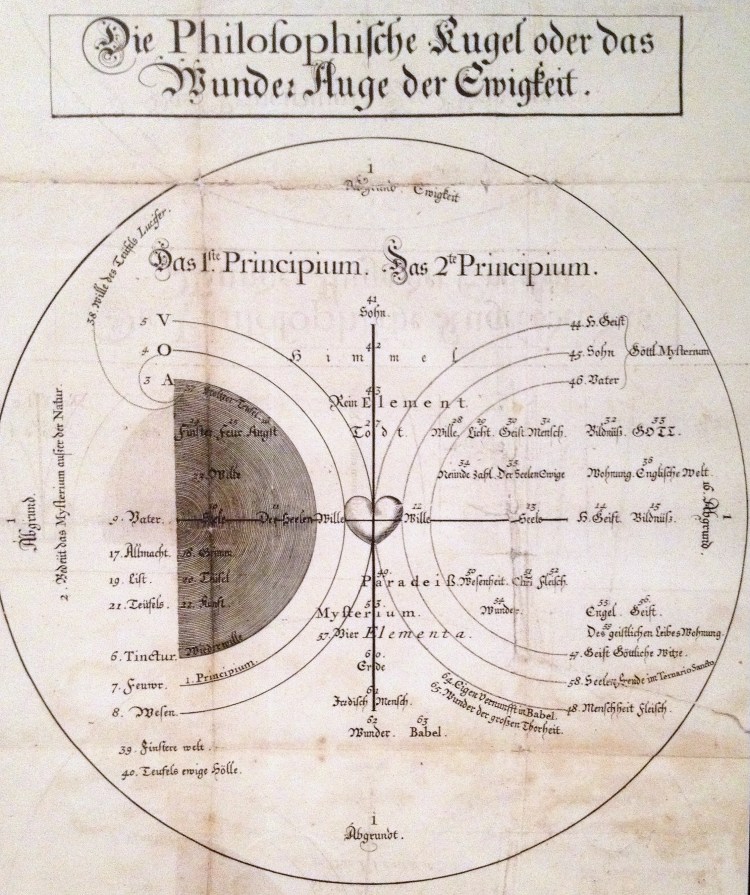 Die Philosophische Kugel oder das
Wunder Auge der Ewigkeit.
1
Abgrund. Ewigkeit
38. Wille des Teüfels Lucifer.
Das 1.ste Principium. Das 2te Principium.
41
Sohn.
5 V
44. H. Geist
4 O
42
Himmel
45. Sohn
Göttl. Mysterium
3 A
46. Vater
43
Rein Element.
Finster Feur Angst
27
Todt.
28 29 30 31
Wille. Licht. Geist. Mensch.
32 33
Bildnüß. GOTT.
Wille
34 35
Neünde Zahl. Der Seelen Ewige
36
Wohnung. Englische Welt.
1
Abgrund.
2. Bedeüt das Mysterium auser der Natur.
9. Vater.
10
Seele
11
Der Seelen Wille
12
Wille
13
Seele
14
H. Geist.
15
Bildnüß.
16. Abgrund.
1
17. Allmacht. 18. Grimm.
19. List. 20. Teüfel
21. Teüfels. 22. Kunst.
49.
Paradeiß.
50 51 52
Wesenheit. Chri Fleisch.
53.
Mysterium.
54
Wunder.
55. 56.
Engel. Geist.
57. Vier Elementa.
Des geistlichen Leibes Wohnung.
Wiederwille
6. Tinctur.
47. Geist Göttliche Witze.
60.
Erde
1. Principium.
7. Feuwr.
58. Seelen Ende im Ternario Sancto
61
Irrdisch Mensch.
64. Eigen Vernunfft in Babel.
65. Wunder der großen Thorheit.
8. Wesen.
48. Menschheit Fleisch.
62 63
Wunder. Babel.
39. Finstere welt.
40. Teüfels ewige Hölle.
1
Abgrundt.